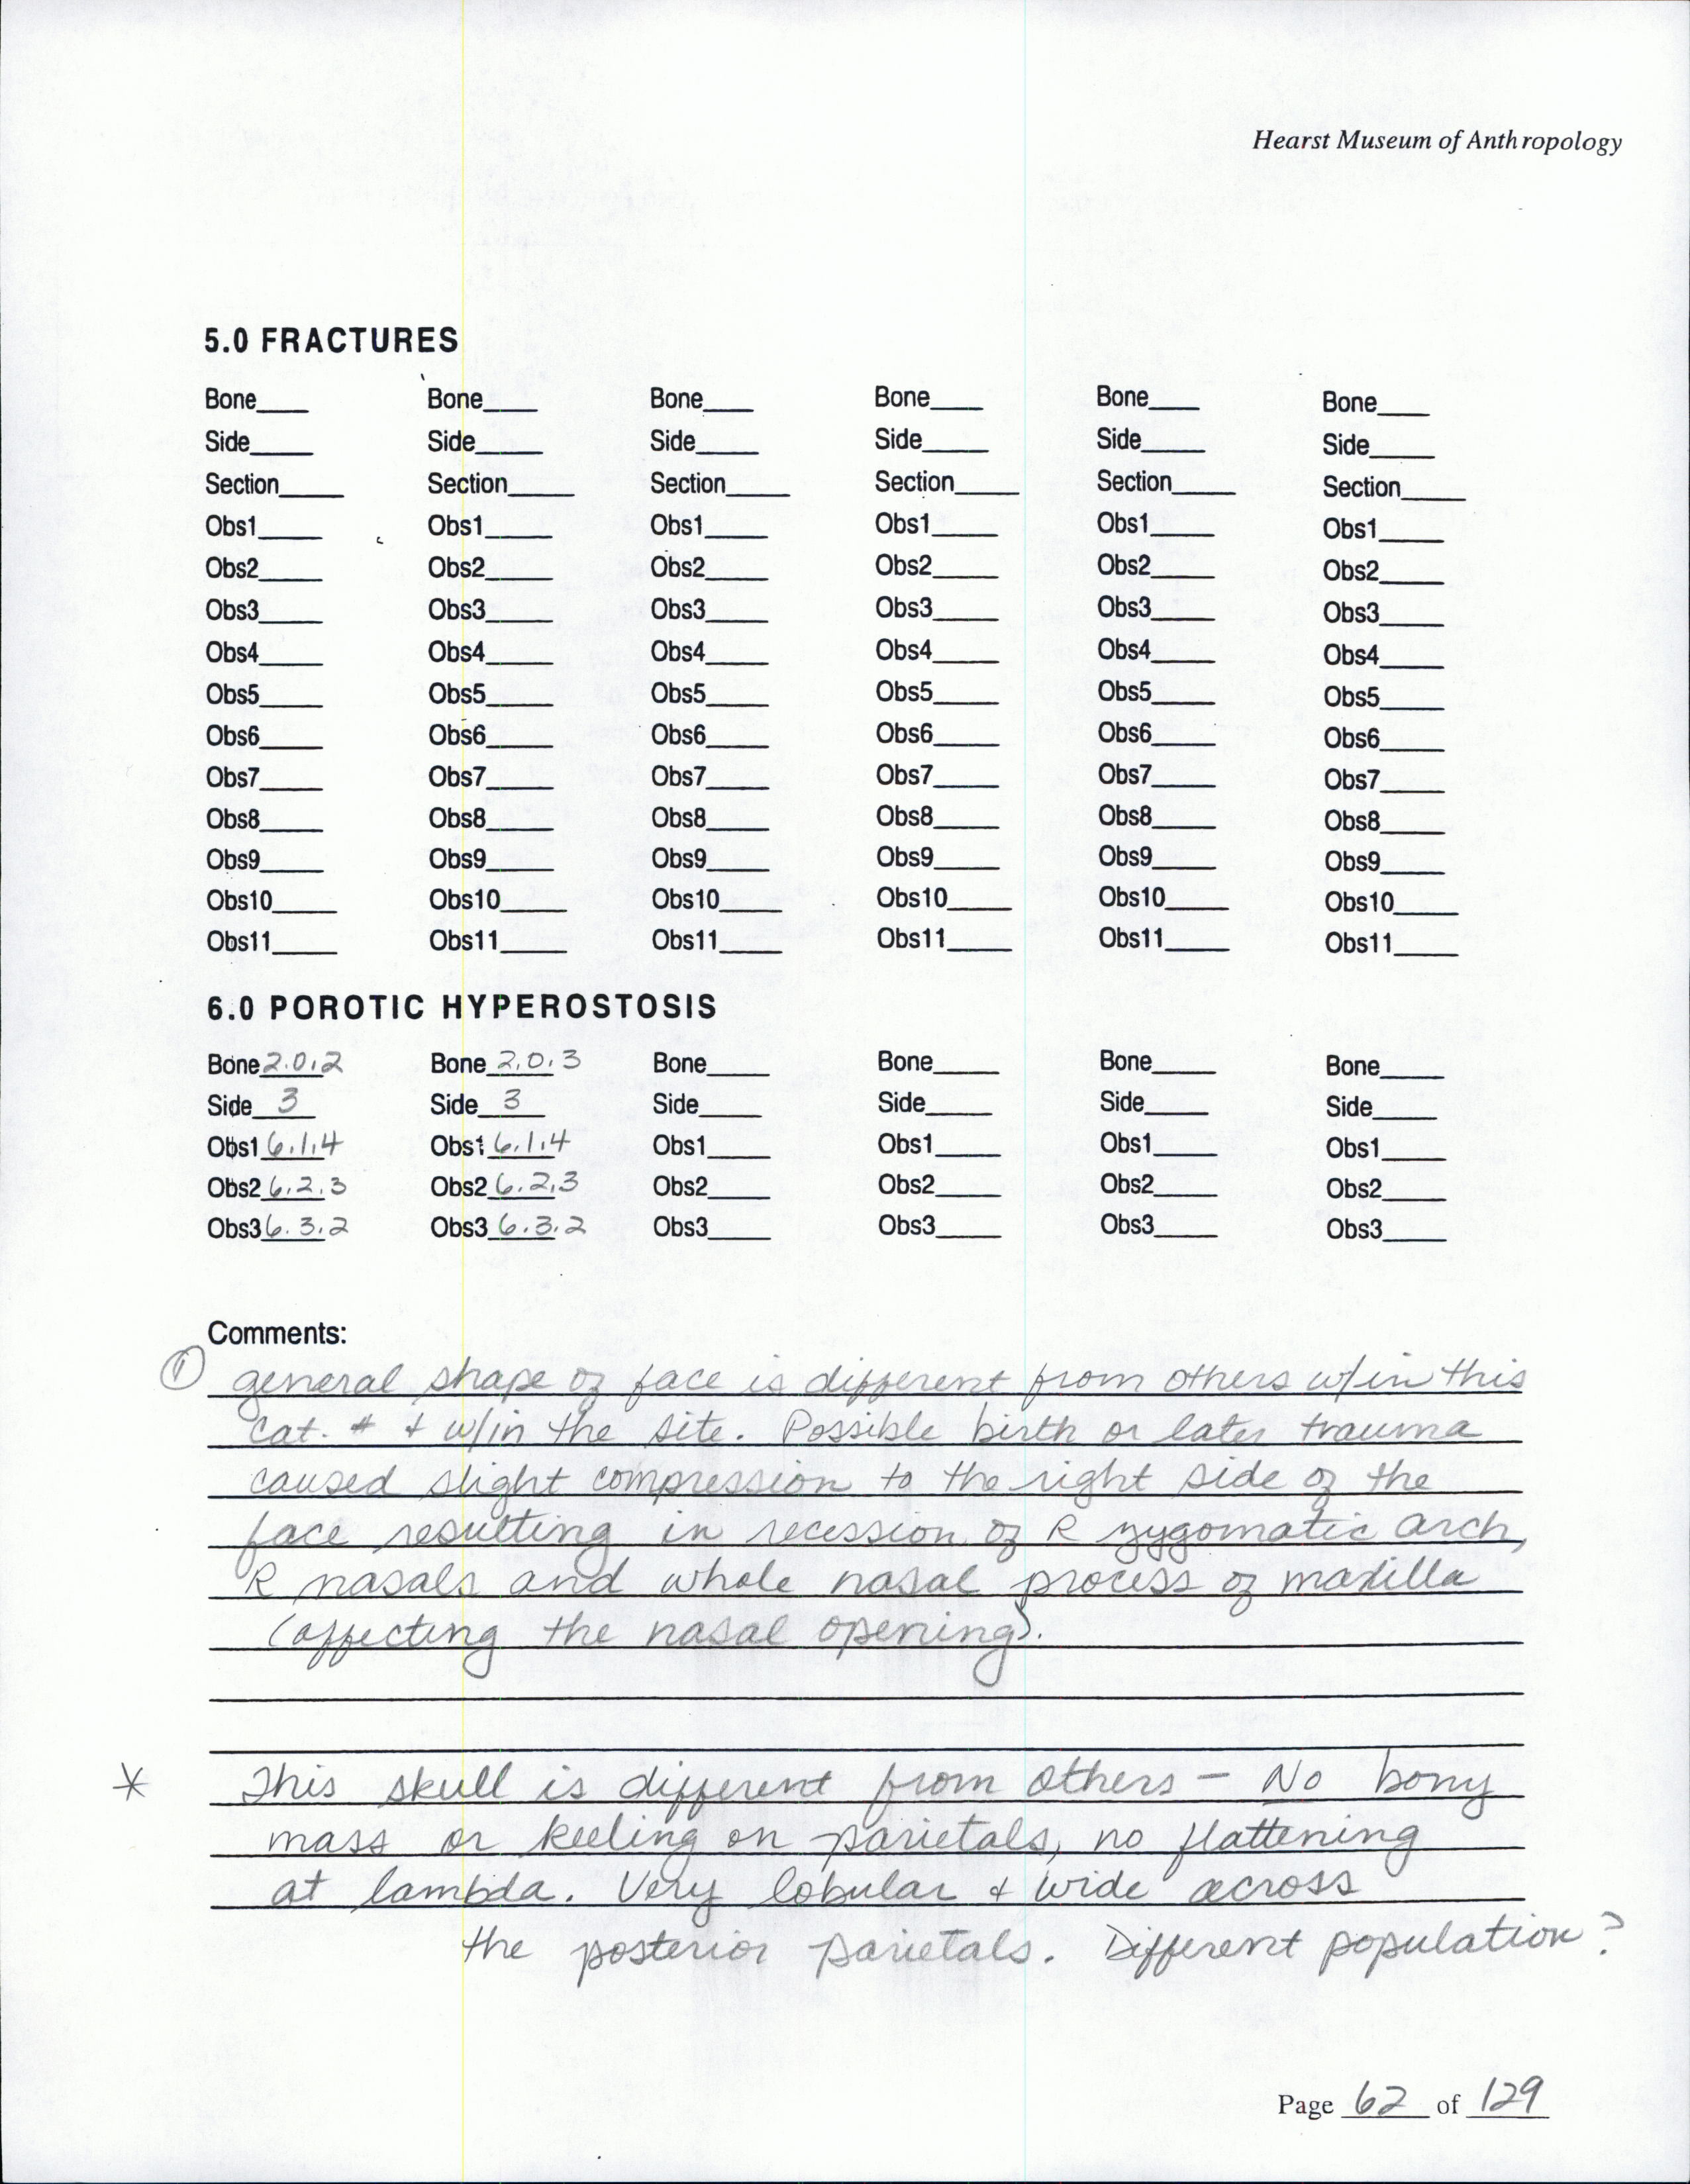 Hearst Museum of Anthropology
5.0 FRACTURES
Bone____ Bone____ Bone____ Bone____ Bone____ Bone____
Side____ Side____ Side____ Side____ Side____ Side____
Section____ Section____ Section____ Section____ Section____ Section____
Obs1____ Obs1____ Obs1____ Obs1____ Obs1____ Obs1____
Obs2____ Obs2____ Obs2____ Obs2____ Obs2____ Obs2____
Obs3____ Obs3____ Obs3____ Obs3____ Obs3____ Obs3____
Obs4____ Obs4____ Obs4____ Obs4____ Obs4____ Obs4____
Obs5____ Obs5____ Obs5____ Obs5____ Obs5____ Obs5____
Obs6____ Obs6____ Obs6____ Obs6____ Obs6____ Obs6____
Obs7____ Obs7____ Obs7____ Obs7____ Obs7____ Obs7____
Obs8____ Obs8____ Obs8____ Obs8____ Obs8____ Obs8____
Obs9____ Obs9____ Obs9____ Obs9____ Obs9____ Obs9____
Obs10____ Obs10____ Obs10____ Obs10____ Obs10____ Obs10____
Obs11____ Obs11____ Obs11____ Obs11____ Obs11____ Obs11____
6.0 POROTIC HYPEROSTOSIS
Bone 2.0.2 Bone 2.0.3 Bone____ Bone____ Bone____ Bone____
Side 3 Side 3 Side____ Side____ Side____ Side____
Obs1 6.1.4 Obs1 6.1.4 Obs1____ Obs1____ Obs1____ Obs1____
Obs2 6.2.3 Obs2 6.2.3 Obs2____ Obs2____ Obs2____ Obs2____
Obs3 6.3.2 Obs3 6.3.2 Obs3____ Obs3____ Obs3____ Obs3____
Comments:
① general shape of face is different from others w/in this
cat. # + w/in the site. Possible birth or later trauma
caused slight compression to the right side of the
face resulting in recession of R zygomatic arch,
R nasals and whole nasal process of maxilla
(affecting the nasal opening).
* This skull is different from others - No bony
mass or keeling on parietals, no flattening
at lambda. Very lobular + wide across
the posterior parietals. Different population?
Page 62 of 129